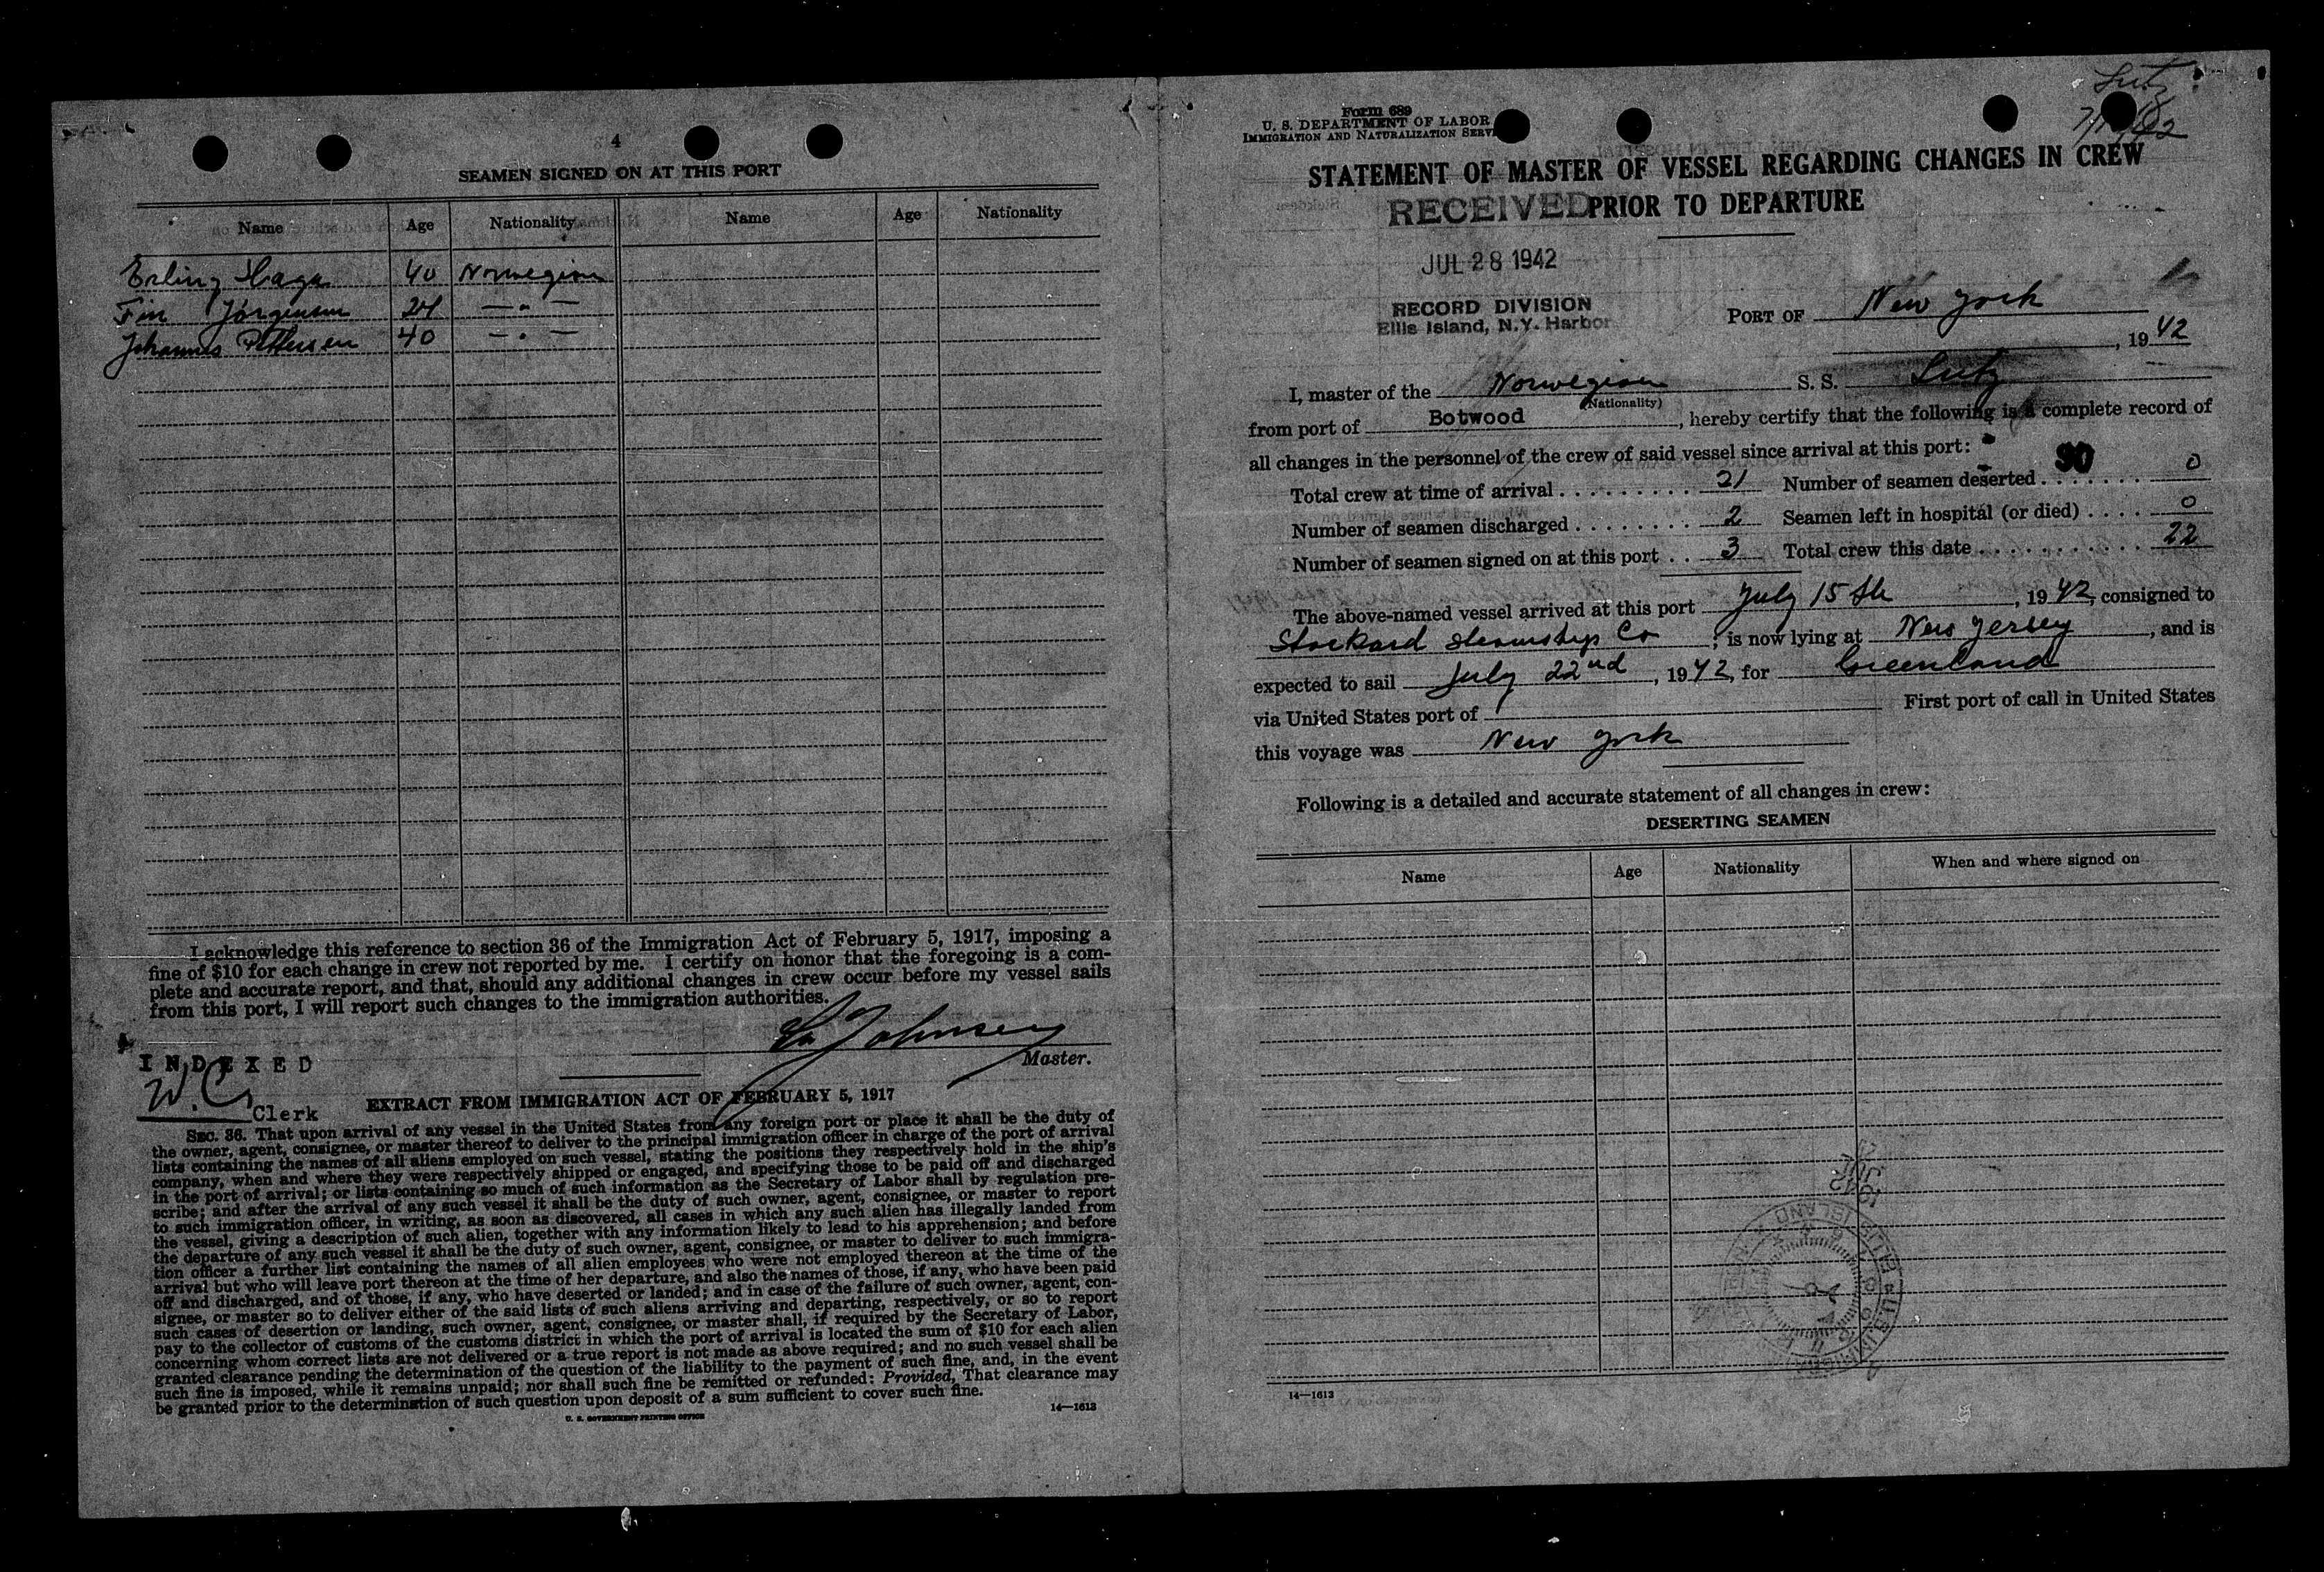 4
SEAMEN SIGNED ON AT THIS PORT
Name Age Nationality Name Age Nationality
Erling Haga 40 Norwegian
Fin Jørgensen 24 — " —
Johannes Pettersen 40 — " —
I acknowledge this reference to section 36 of the Immigration Act of February 5, 1917, imposing a
fine of $10 for each change in crew not reported by me. I certify on honor that the foregoing is a com-
plete and accurate report, and that, should any additional changes in crew occur before my vessel sails
from this port, I will report such changes to the immigration authorities.
Johnsen
Master.
INDEXED
W.C.
Clerk
EXTRACT FROM IMMIGRATION ACT OF FEBRUARY 5, 1917
SEC. 36. That upon arrival of any vessel in the United States from any foreign port or place it shall be the duty of
the owner, agent, consignee, or master thereof to deliver to the principal immigration officer in charge of the port of arrival
lists containing the names of all aliens employed on such vessel, stating the positions they respectively hold in the ship's
company, when and where they were respectively shipped or engaged, and specifying those to be paid off and discharged
in the port of arrival; or lists containing so much of such information as the Secretary of Labor shall by regulation pre-
scribe; and after the arrival of any such vessel it shall be the duty of such owner, agent, consignee, or master to report
to such immigration officer, in writing, as soon as discovered, all cases in which any such alien has illegally landed from
the vessel, giving a description of such alien, together with any information likely to lead to his apprehension; and before
the departure of any such vessel it shall be the duty of such owner, agent, consignee, or master to deliver to such immigra-
tion officer a further list containing the names of all alien employees who were not employed thereon at the time of the
arrival but who will leave port thereon at the time of her departure, and also the names of those, if any, who have been paid
off and discharged, and of those, if any, who have deserted or landed; and in case of the failure of such owner, agent, con-
signee, or master so to deliver either of the said lists of such aliens arriving and departing, respectively, or so to report
such cases of desertion or landing, such owner, agent, consignee, or master shall, if required by the Secretary of Labor,
pay to the collector of customs of the customs district in which the port of arrival is located the sum of $10 for each alien
concerning whom correct lists are not delivered or a true report is not made as above required; and no such vessel shall be
granted clearance pending the determination of the question of the liability to the payment of such fine, and, in the event
such fine is imposed, while it remains unpaid; nor shall such fine be remitted or refunded: Provided, That clearance may
be granted prior to the determination of such question upon deposit of a sum sufficient to cover such fine.
U. S. GOVERNMENT PRINTING OFFICE
14—1613
Form 689
U. S. DEPARTMENT OF LABOR
IMMIGRATION AND NATURALIZATION SERVI
Lutz
STATEMENT OF MASTER OF VESSEL REGARDING CHANGES IN CREW
PRIOR TO DEPARTURE
RECEIVED
JUL 28 1942
RECORD DIVISION
Ellis Island, N.Y. Harbor
PORT OF New York
, 19 42
I, master of the Norwegian S. S. Lutz
(Nationality)
from port of Botwood , hereby certify that the following is a complete record of
all changes in the personnel of the crew of said vessel since arrival at this port:
90
Total crew at time of arrival 21 Number of seamen deserted 0
Number of seamen discharged 2 Seamen left in hospital (or died) 0
Number of seamen signed on at this port 3 Total crew this date 22
The above-named vessel arrived at this port July 15 th , 19 42, consigned to
Stockard Steamship Co ; is now lying at New Jersey , and is
expected to sail July 22nd , 19 42, for Greenland
via United States port of First port of call in United States
this voyage was New York
Following is a detailed and accurate statement of all changes in crew:
DESERTING SEAMEN
Name Age Nationality When and where signed on
14—1613